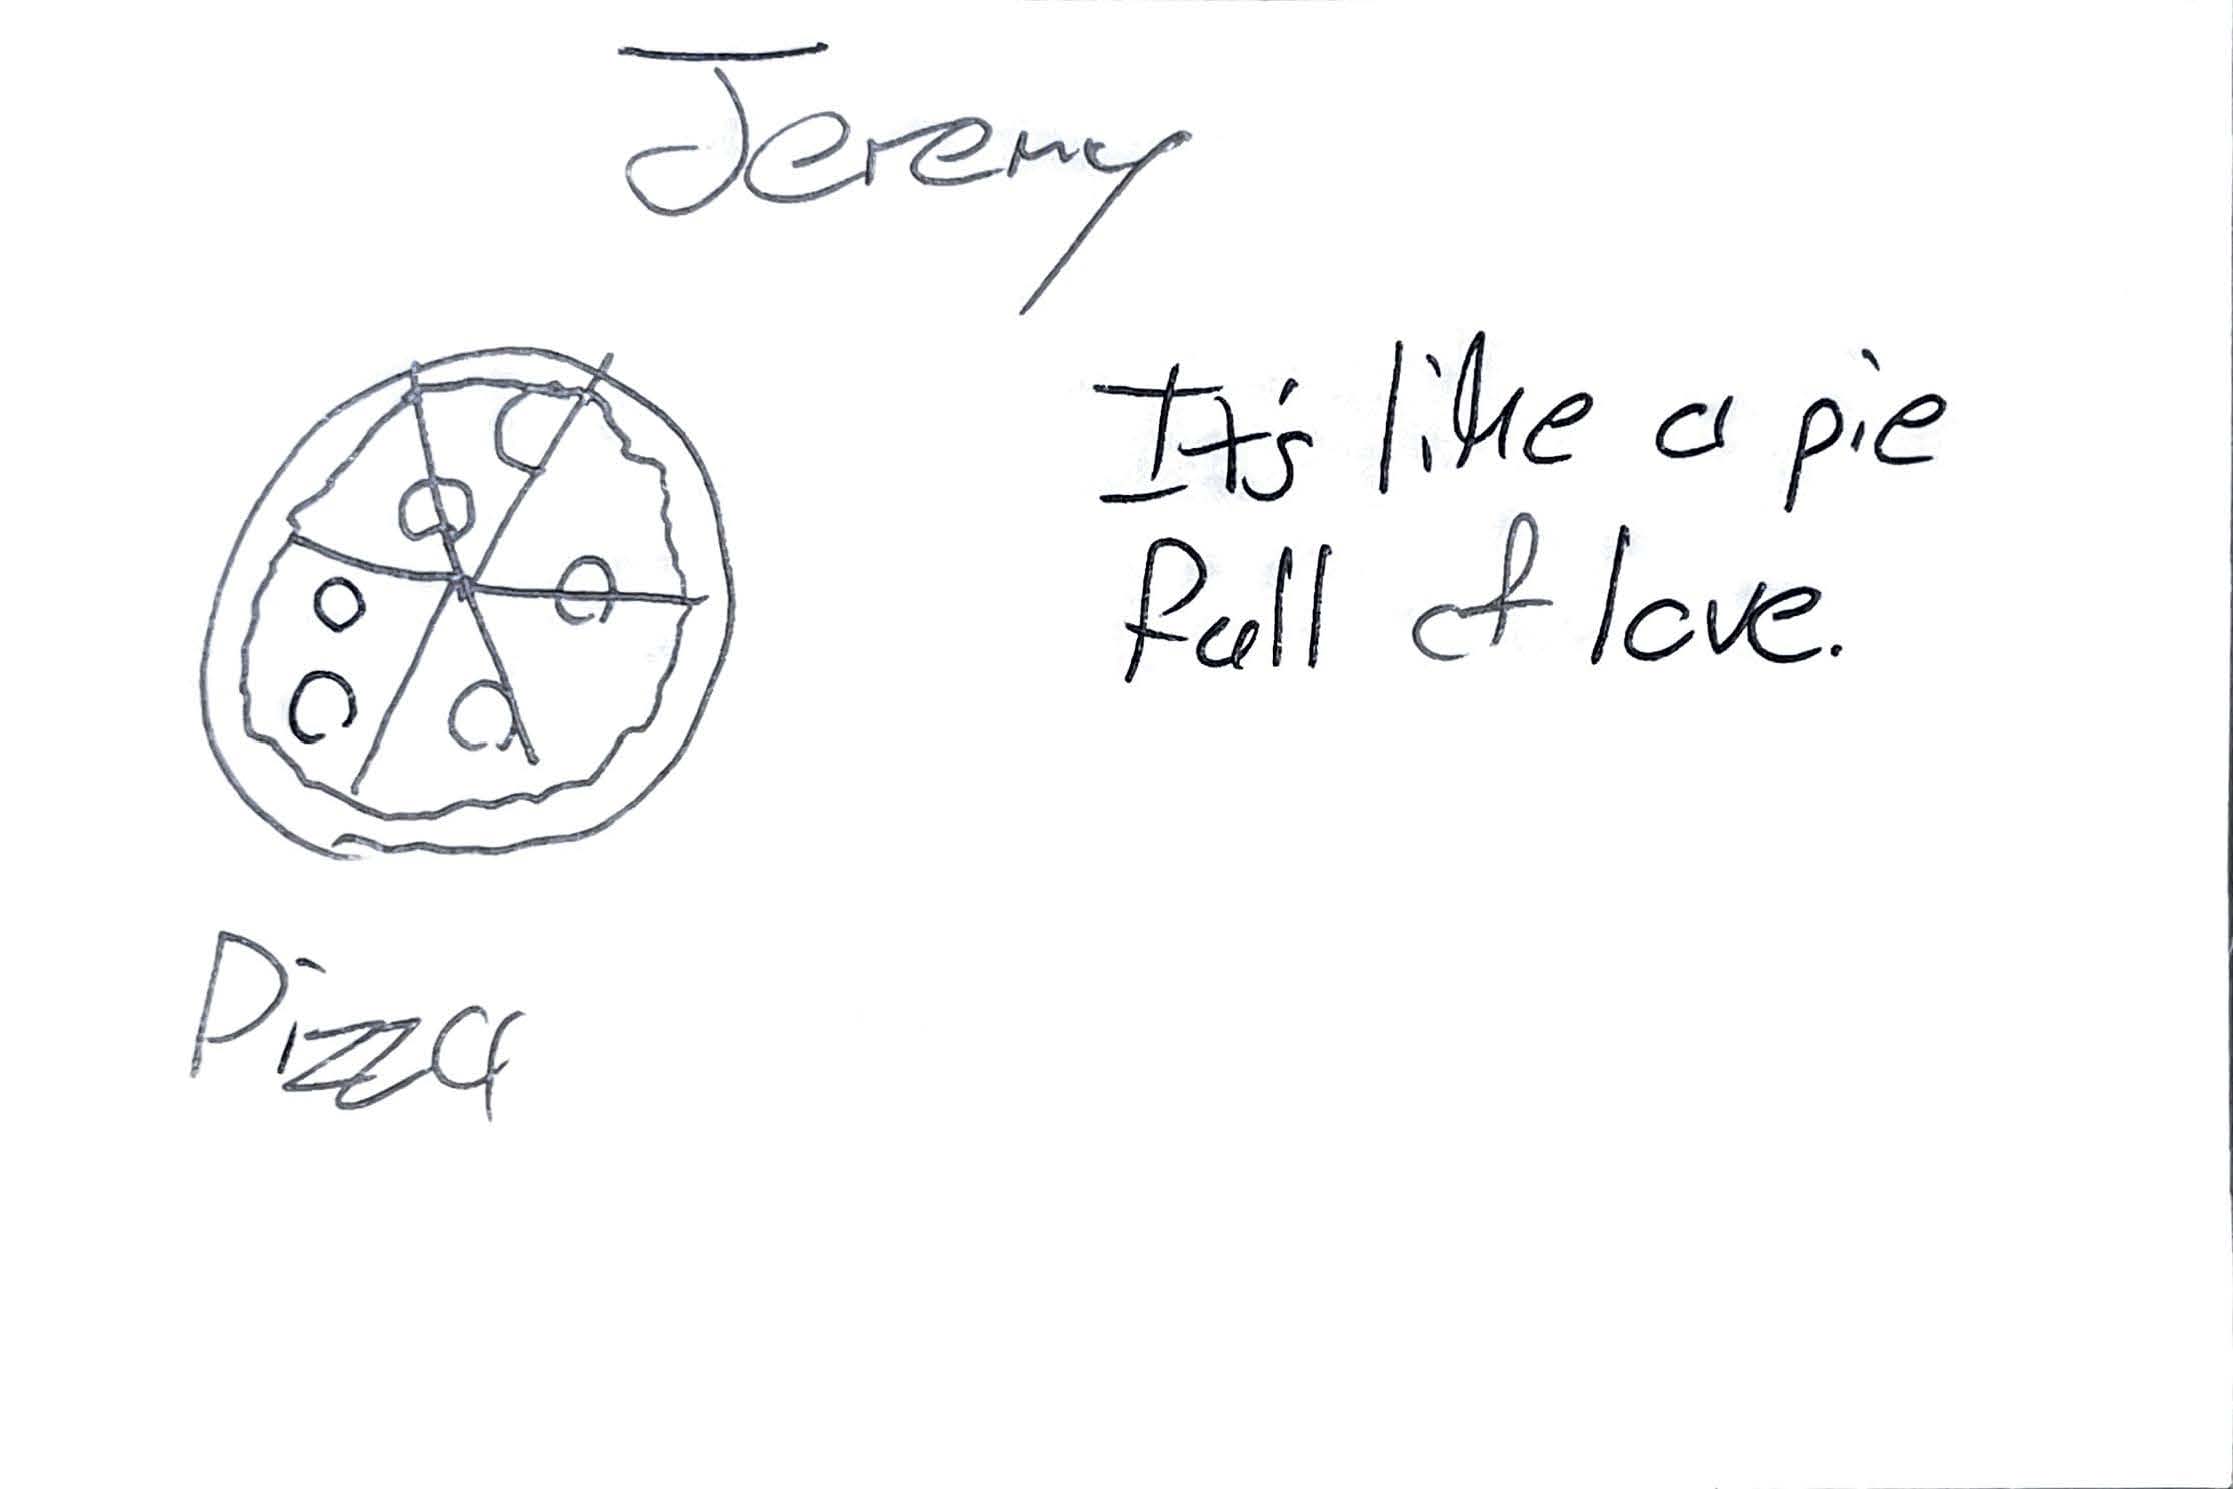 Jeremy
It's like a pie
full of love.
Pizza